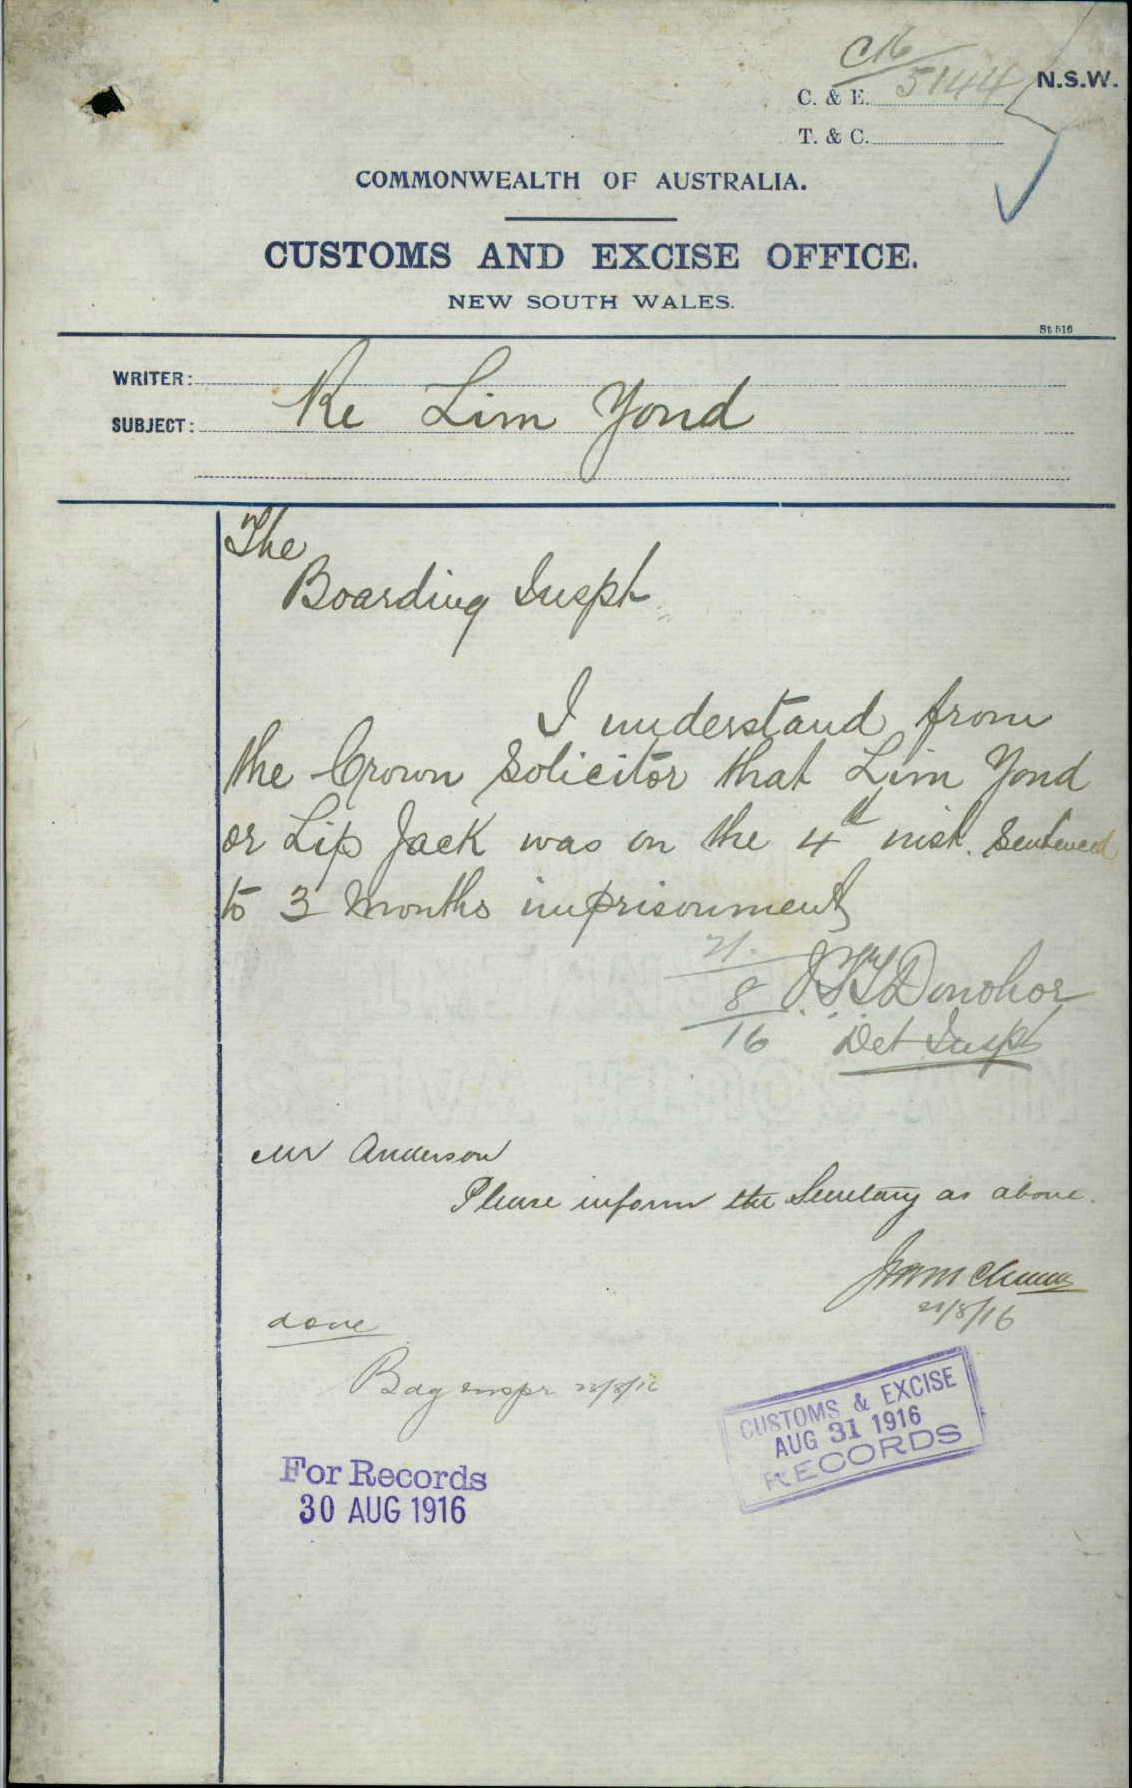 C16
C. & E. 5144 N.S.W.
T. & C.
COMMONWEALTH OF AUSTRALIA.
CUSTOMS AND EXCISE OFFICE.
NEW SOUTH WALES.
St 516
WRITER:
SUBJECT: Re Lim Yond
The
Boarding Inspt
I understand from
the Crown Solicitor that Lim Yond
or Lip Jack was on the 4th inst. Sentenced
to 3 Months imprisonment
21.
8
16
Donohoe
Det Inspt
Mr Anderson
Please inform the Secretary as above.
21/8/16
done
Bdg inspr
CUSTOMS & EXCISE
AUG 31 1916
RECORDS
For Records
30 AUG 1916